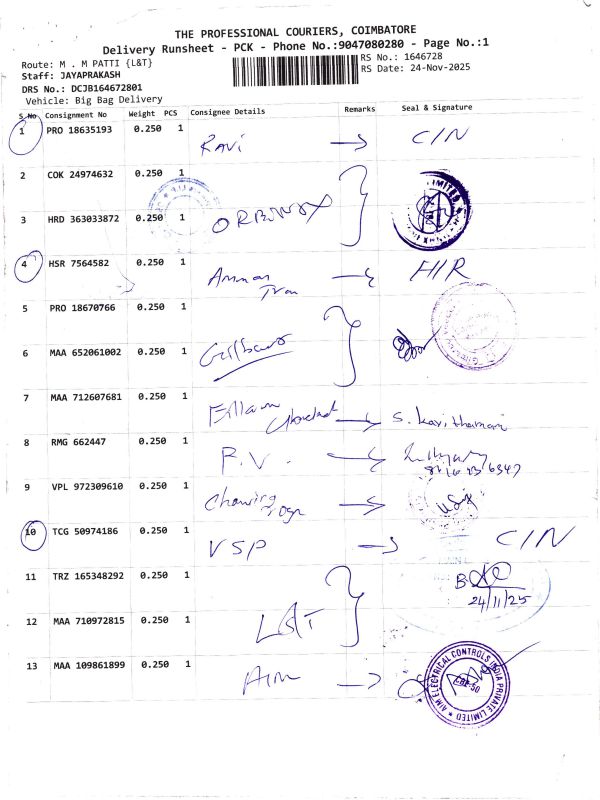 THE PROFESSIONAL COURIERS, COIMBATORE
Delivery Runsheet - PCK - Phone No.:9047080280 - Page No.:1
Route: M . M PATTI {L&T}
RS No.: 1646728
Staff: JAYAPRAKASH
RS Date: 24-Nov-2025
DRS No.: DCJB164672801
Vehicle: Big Bag Delivery
S.No Consignment No Weight PCS Consignee Details Remarks Seal & Signature
1 PRO 18635193 0.250 1 Ravi C/N
2 COK 24974632 0.250 1
3 HRD 363033872 0.250 1
4 HSR 7564582 0.250 1 H/R
5 PRO 18670766 0.250 1
6 MAA 652061002 0.250 1
7 MAA 712607681 0.250 1 S. Kavithamani
8 RMG 662447 0.250 1 P.V.
9 VPL 972309610 0.250 1
10 TCG 50974186 0.250 1 VSP C/N
11 TRZ 165348292 0.250 1
24/11/25
12 MAA 710972815 0.250 1 L&T
13 MAA 109861899 0.250 1 Aim
AIM ELECTRICAL CONTROLS INDIA PRIVATE LIMITED